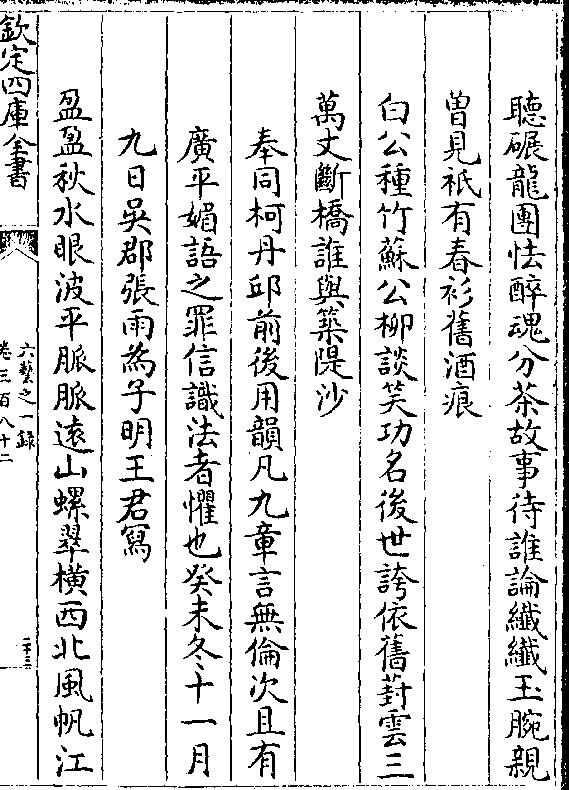 聽碾龍團怯醉魂分茶故事待誰論纖纖玉腕親
曽見祇有春衫舊酒痕
白公種竹蘇公柳談笑功名後世誇依舊葑雲三
萬丈斷橋誰與築隄沙
奉同柯丹邱前後用韻凡九章言無倫次且有
廣平媚語之罪信識法者懼也癸未冬十一月
九日吳郡張雨為子明王君寫
盈盈秋水眼波平脈脈遠山螺翠橫西北風帆江
欽定四庫全書
六藝之一錄
卷三百八十二
二十三